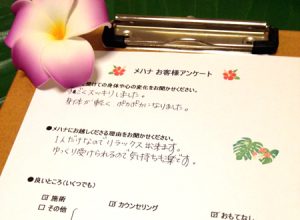 メハナ お客様アンケート
けての身体や心の変化をお聞かせください。
スッキリしました。
身体が軽く ポカポカになりました。
●メハナにお越しくださる理由をお聞かせください。
1人だけなのでリラックス出来ます。
ゆっくり受けられるので気持ちも楽です。
●良いところ(いくつでも)
☑ 施術
☑ カウンセリング
☑ おもてなし
□ その他